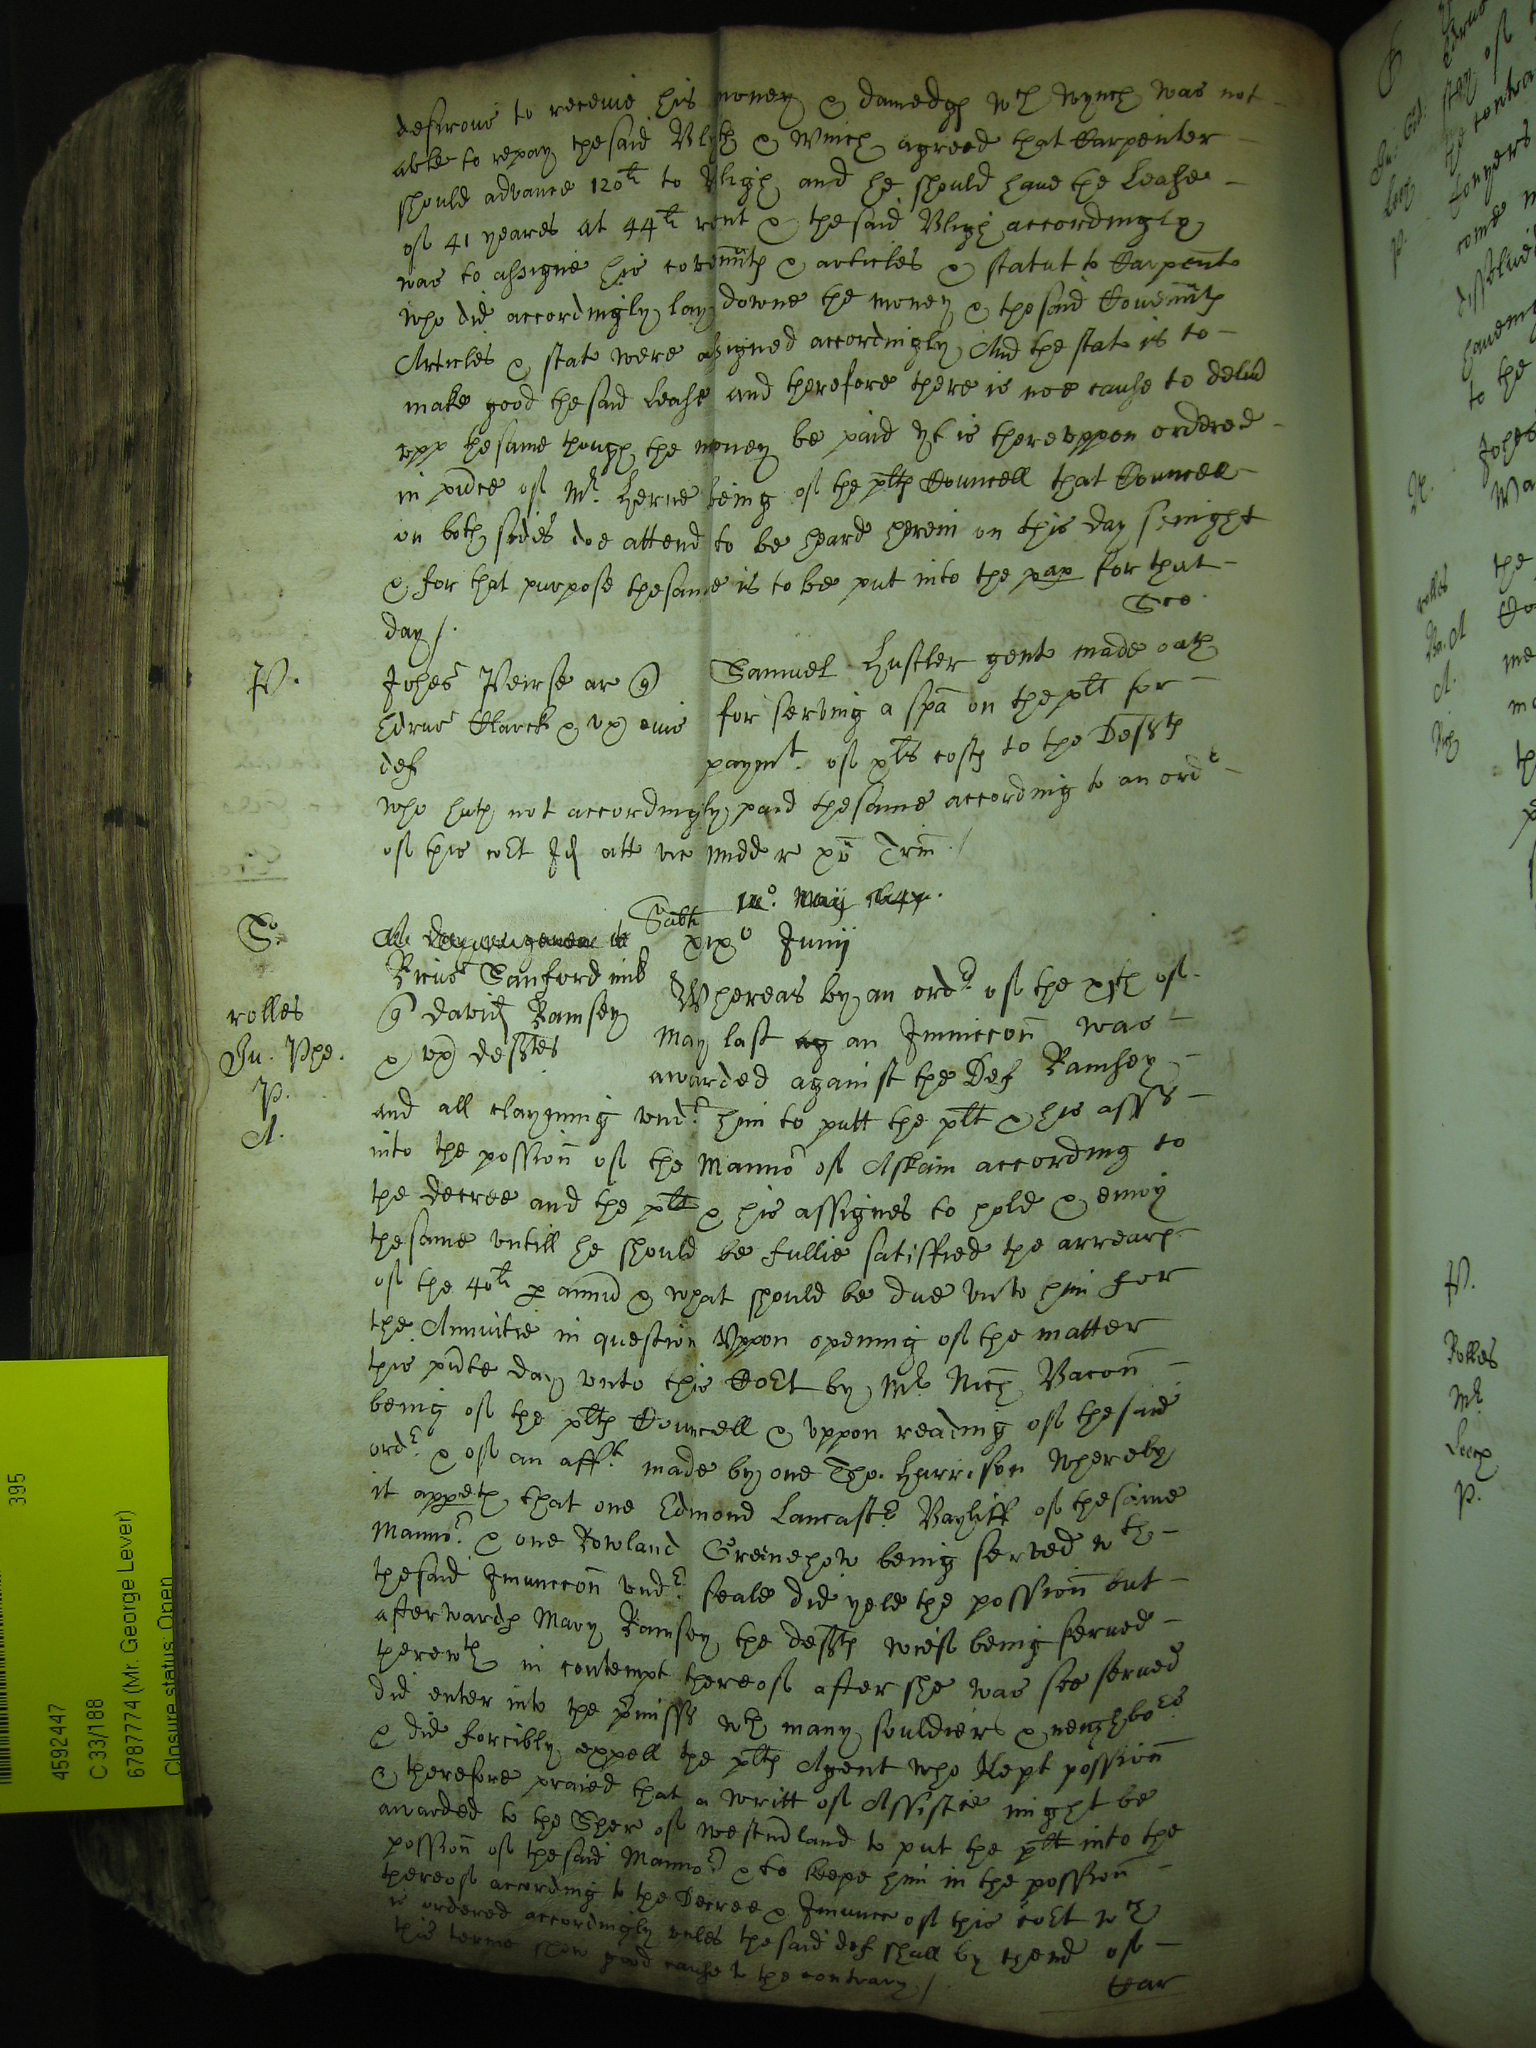 desirous to receive his money & damedgs wch Wynch was not
able to repay the said Bligh & Winch agreed that Carpenter
should advance 120li to Bligh and he should have the Lease
of 41 yeares at 44li rent & the said Bligh accordingly
was to assigne his covennts & articles & statut to Carpent
who did accordingly lay downe the money & the said Covennts
Articles & stat were assigned accordingly And the stat is to
make good the said Lease and therefore there is noe cause to deliv
upp the same though the money be paid yt is thereuppon ordered
in pnce of Mr. Herne being of the plts Councell that Councell
on both sides doe attend to be heard herein on this day senight
& for that purpose the same is to be put into the pap for that
day /.
Sco
P.
Johes Peirse ar Q
Edrus Clarck & ux eius
def
Samuel Hustler gent made oath
for serving a spa on the plt for
paymt. of pls costs to the Deffts
who hath not accordingly paid the same according to an ordr
of this cort Id att vic Midd r xv Trin /
S.
Sabti
xixo Junij
rolles
Ju. Ppe.
P.
A.
Ricus Sanford mil
Q David Ramsey
& ux deftes
Whereas by an ordr of the xjth of
May last an Iniunccon was
awarded against the Def Ramsey
and all clayming undr him to putt the plt & his asss
into the possion of the Mannor of Askam according to
the decree and the plt & his assignes to hold & enioy
the same untill he should be fullie satisfied the arrears
of the 40li p annu & what should be due unto him for
the Annuitie in question Uppon opening of the matter
this pnte day unto this Cort by Mr Nich Bacon
being of the plts Councell & uppon reading of the said
ordr & of an afft made by one Tho. Harrison whereby
it appeth that one Edmond Lancastr Bayliff of the same
Mannor & one Rowland Greenehow being served wth
the said Iniunccon undr seale did yeld the possion but
afterwards Mary Ramsey the defts wief being served
therewth in contempt thereof after she was soe served
did enter into the pmisss wth many souldiers & neighbors
& did forcibly expell the plts Agent who kept possion
& therefore praied that a writt of Assistce might be
awarded to the Sher of Westmland to put the plt into the
possion of the said Mannor & to keepe him in the possion
thereof according to the Decree & Iniuncc of this cort wch
is ordered accordingly unles the said def shall by thend of
this terme shew good cause to the contrary /.
Car
395
4592447
C 33/188
6787774 (Mr. George Lever)
Closure status: Open